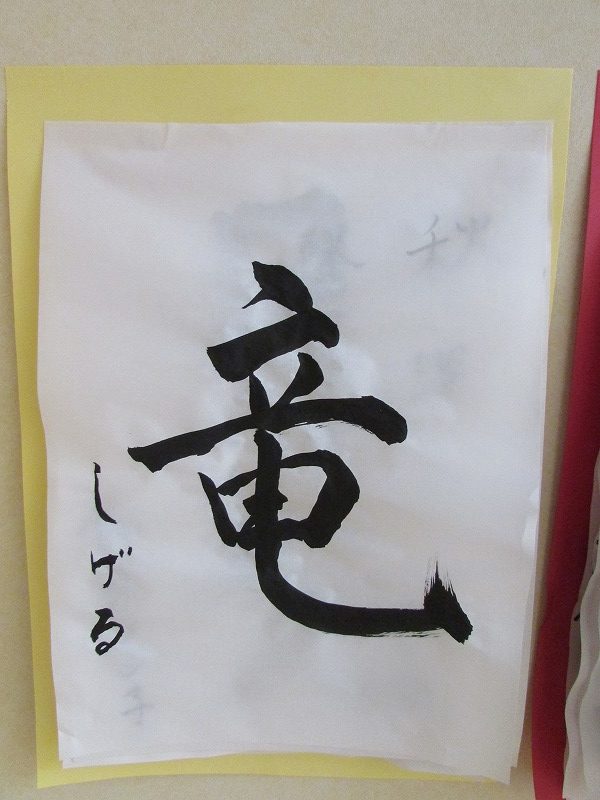 竜
しげる